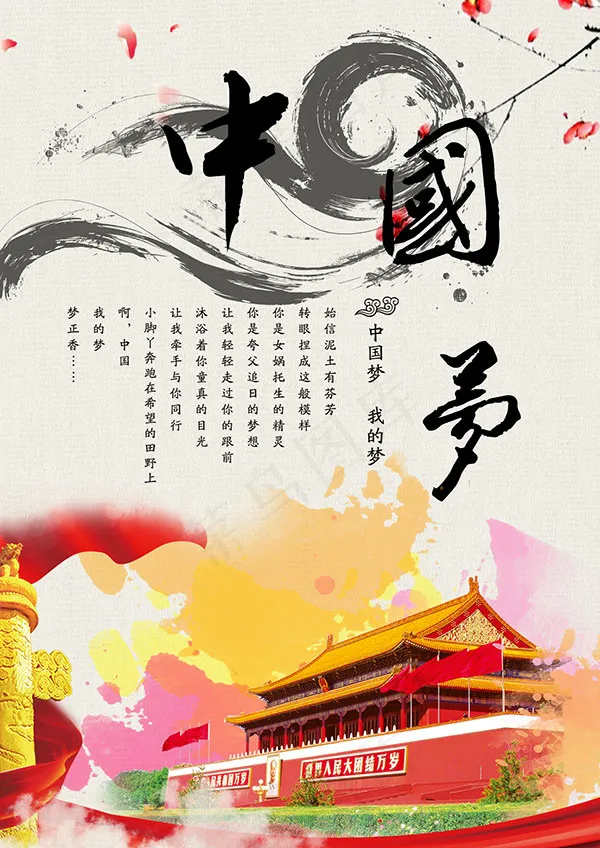 中國
夢
中国梦 我的梦
始信泥土有芬芳
转眼捏成这般模样
你是女娲托生的精灵
你是夸父追日的梦想
让我轻轻走过你的跟前
沐浴着你童真的目光
让我牵手与你同行
小脚丫奔跑在希望的田野上
啊，中国
我的梦
梦正香……
民共和国万岁
世界人民大团结万岁
菜鸟图库